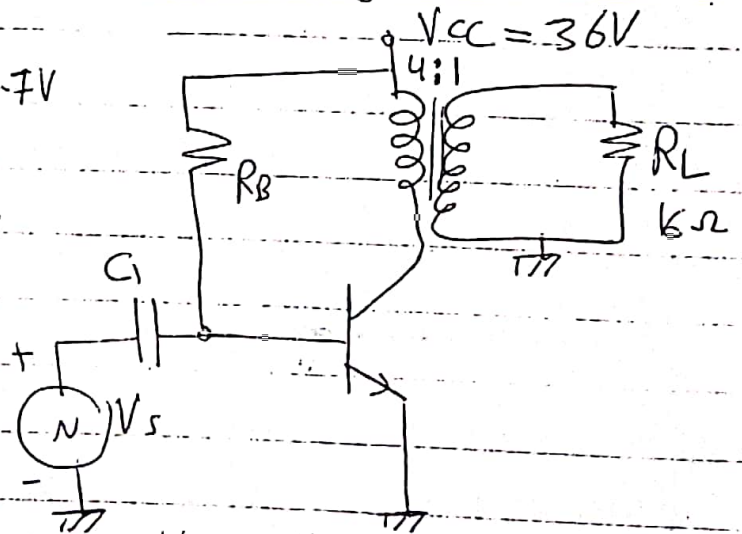 VCC = 36V
4:1
.7V
RB
RL
C1
+
Vs
-